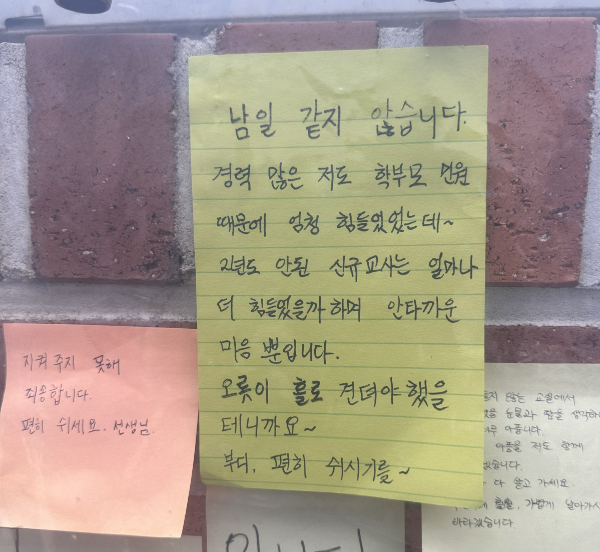 남일 같지 않습니다.
경력 많은 저도 학부모 민원
때문에 엄청 힘들었었는데~
2년도 안된 신규교사는 얼마나
더 힘들었을까하며 안타까운
마음 뿐입니다.
오롯이 홀로 견뎌야했을
테니까요~
부디, 편히 쉬시기를~
지켜주지 못해
죄송합니다.
편히 쉬세요. 선생님
않은 교실에서
눈물과 땀을 생각하
아픕니다.
아픔을 저도 함께
겠습니다.
다 잊고 가세요
훨훨, 가볍게 날아가시
바라겠습니다.